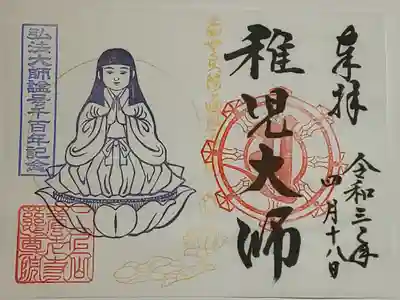 奉拝
令和三年
四月十八日
稚児大師
弘法大師諡号千百年記念